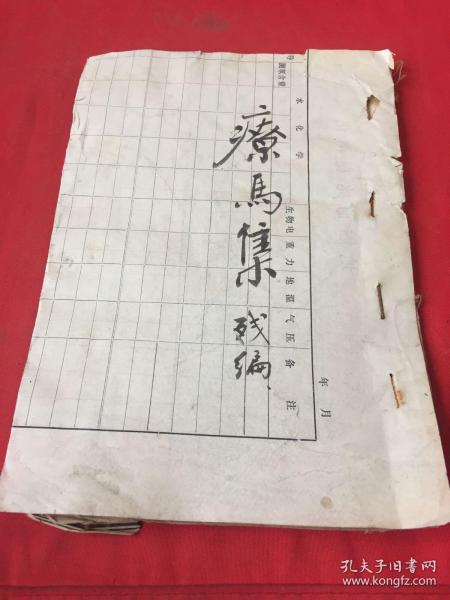 療馬集
残编
导
测氡含量
水化学
生物电
重力
地温
气压
备注
年月
孔夫子旧书网
www.kongfz.com